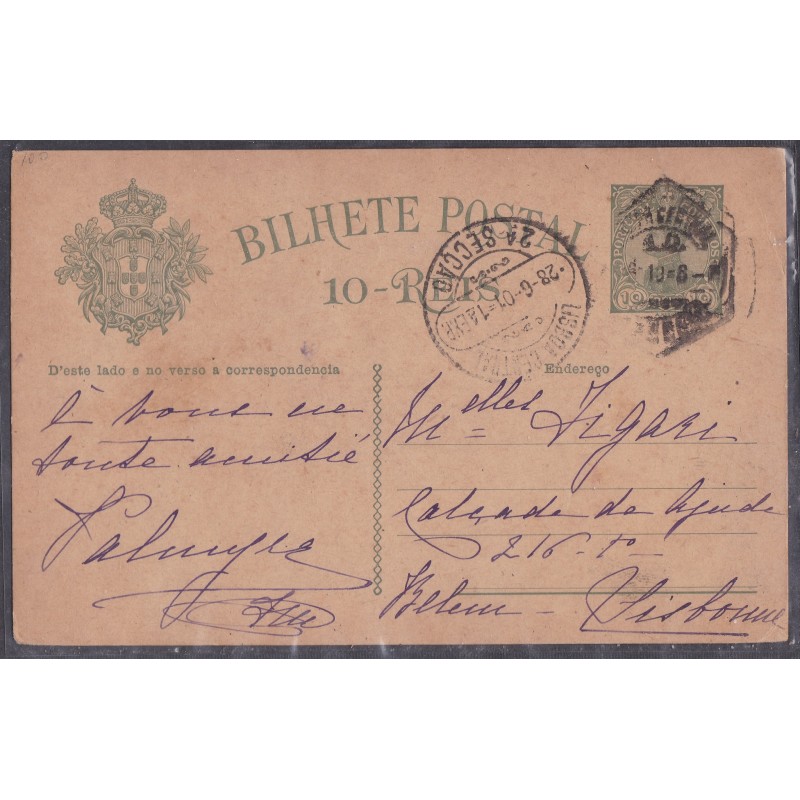 BILHETE POSTAL
10-REIS
PORTUGAL
10 10
2ª SECÇÃO
28-6-01
LISBOA CENTRAL
D'este lado e no verso a correspondencia
Endereço
à vous en
toute amitié
Palmyra
Melles Figari
Calçada da Ajuda
216-1º
Belem - Lisbonne